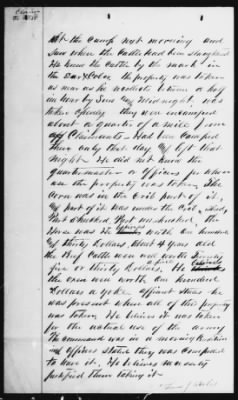 At the camp next morning and
saw where the Cattle had been slaughtered
He knew the Cattle by the mark in
the ear & Color the property was taken
as near as he recollects about a half
an hour by Sun and Midnight, was
taken openly they were encamped
about a quarter of a mile from
Claimants Had been Camped
there only that day and left that
Night He did not know the
quartermaster or Officers for whose
use the property was taken The
Corn was in the Crib part of it,
part of it was under the Crib,
Part shucked, Part unshucked the
Horse was worth one hundred
and thirty Dollars, about 4 years old
the Beef Cattle were well worth
five or thirty Dollars, He
the oxen were worth one hundred
Dollars a yoke Affiant states he
was present when all of this property
was taken, He believes it was taken
for the actual use of the army
The command was in a moving Condition
and Officers stated they was compelled
to have it, He believes necessity
justified them taking it